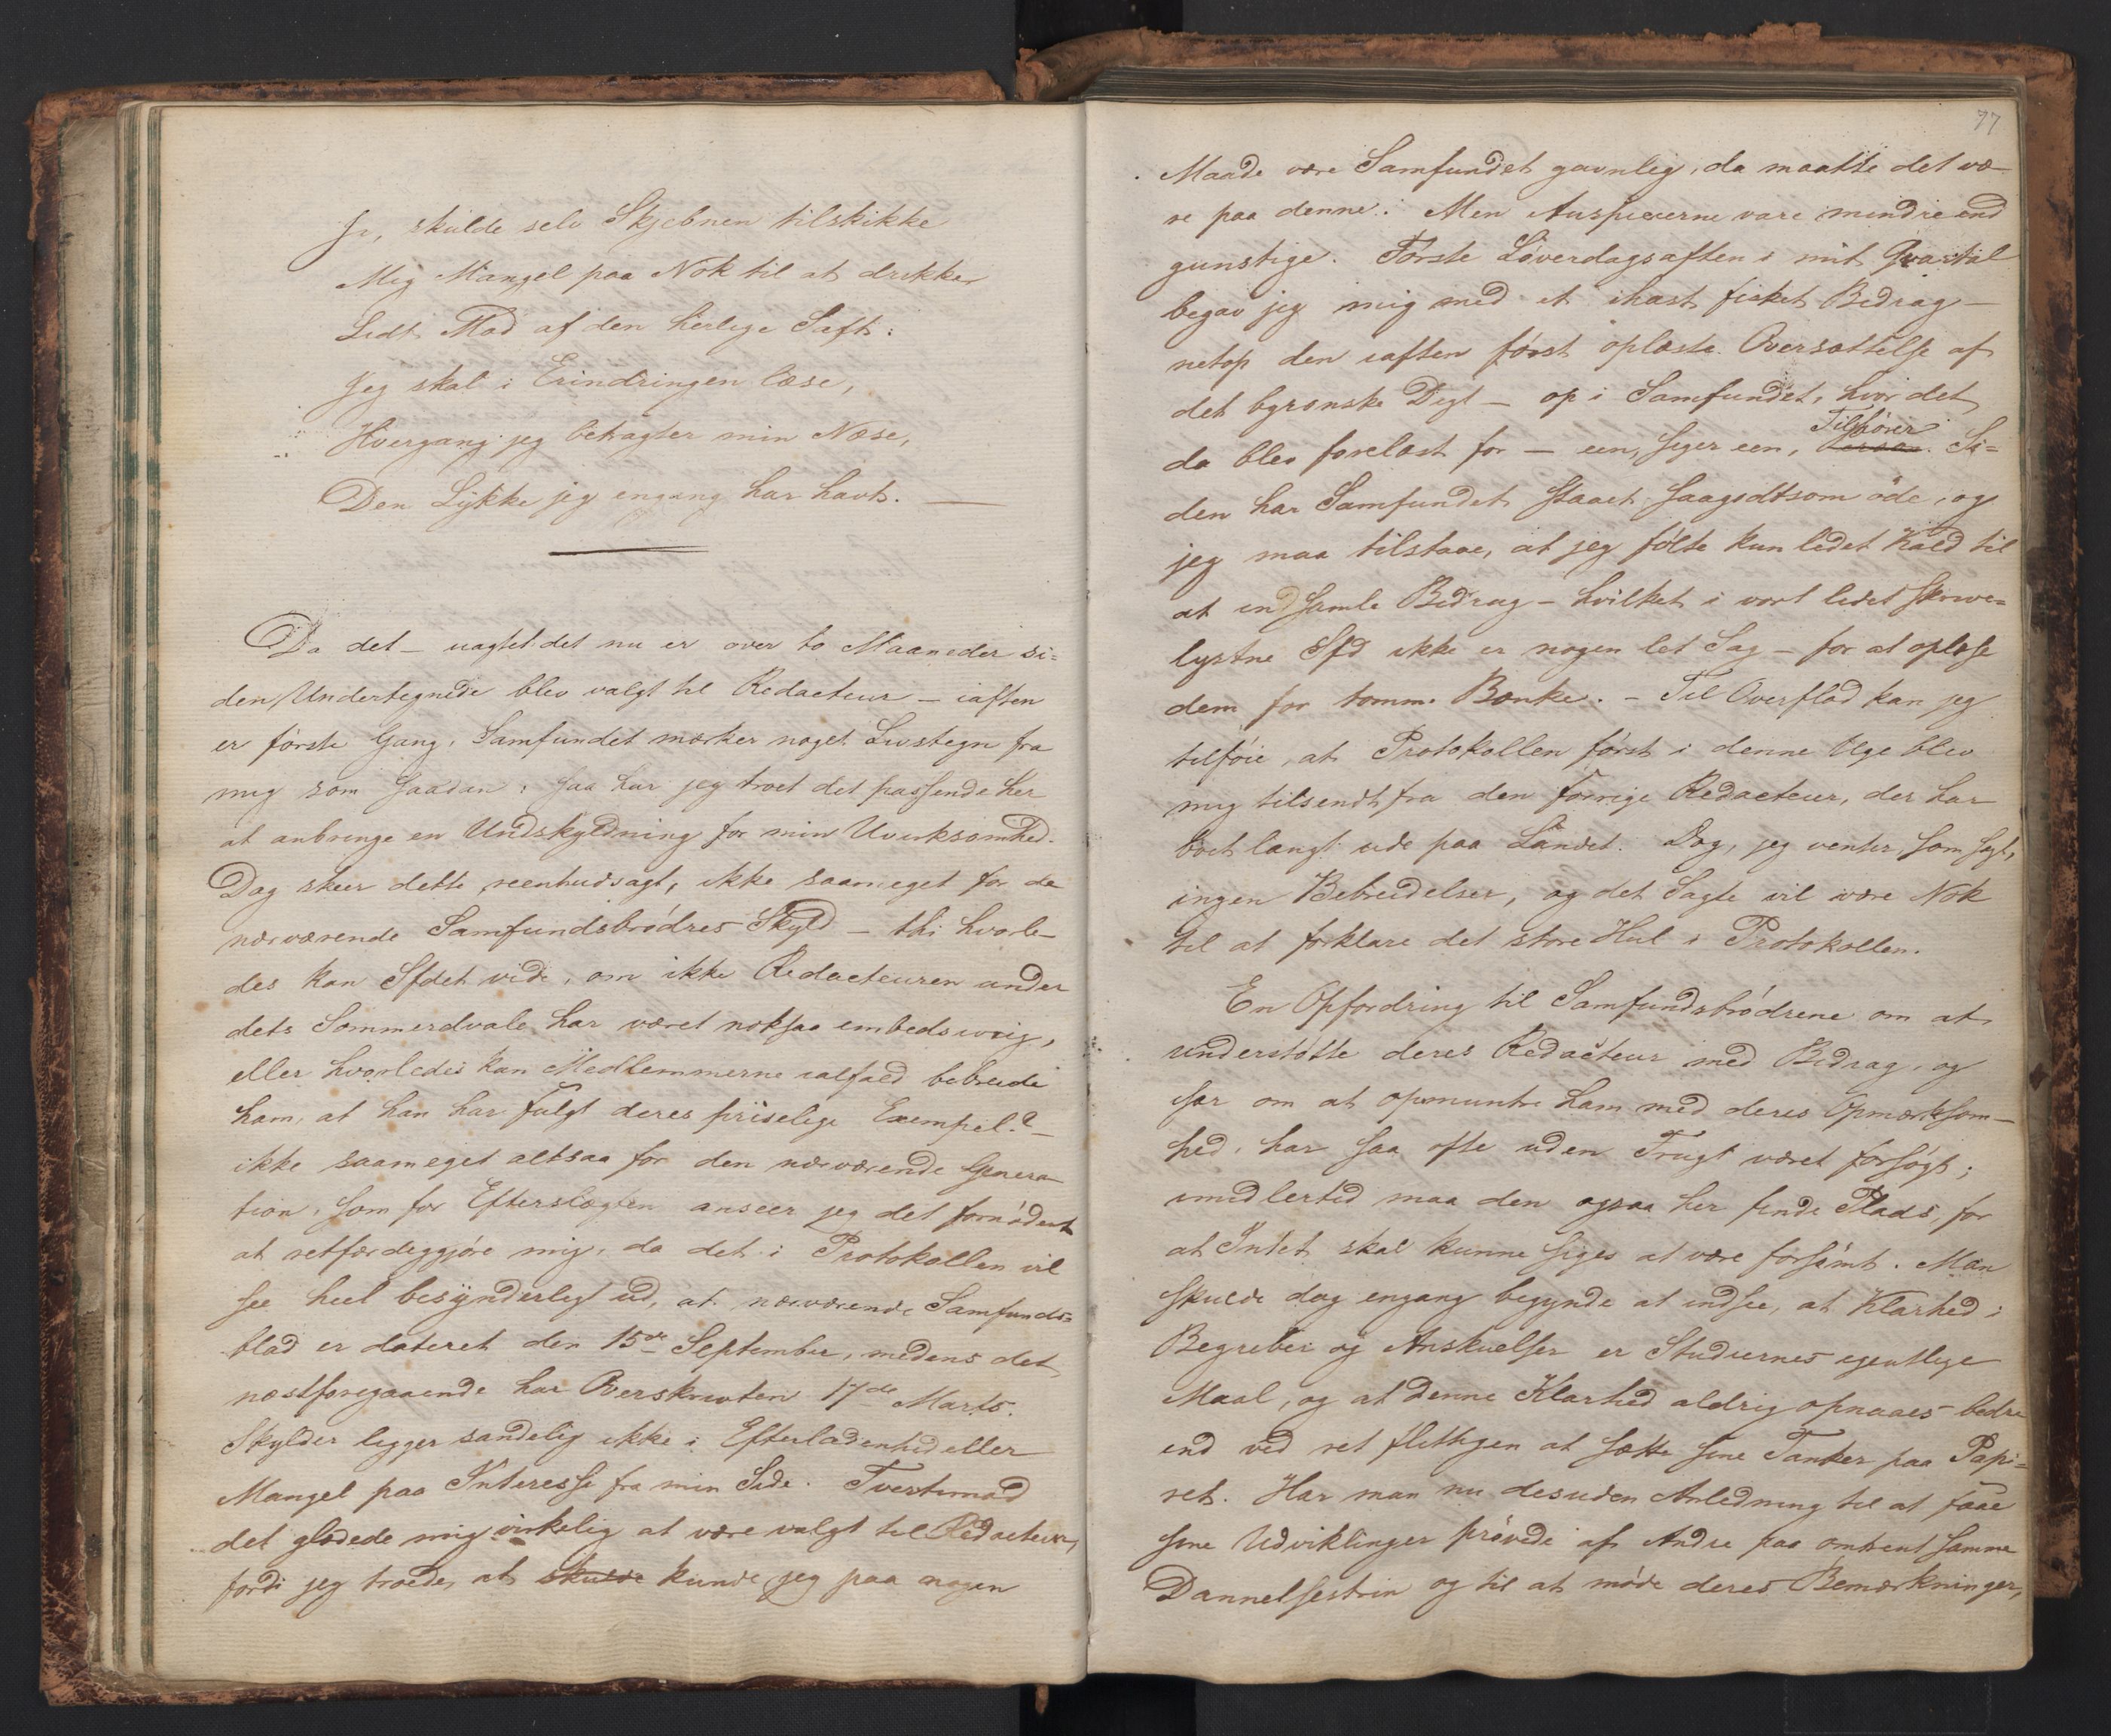 Ja, skulde selv Skjebnen tilskikke
Mig Mangel paa Nok til at drikke
Lidt Mad af den herlige Saft:
Jeg skal i Erindringen læse,
Hvergang jeg betragter min Næse,
Den Lykke jeg engang har havt. —
Da det – uagtet det nu er over to Maaneder si=
den Undertegnede blev valgt til Redacteur – iaften
er første Gang, Samfundet mærker noget Livstegn fra
mig som saadan: saa har jeg troet det passende her
at anbringe en Undskyldning for min Uvirksomhed.
Dog skeer dette, reentudsagt, ikke saameget for de
nærværende Samfundsbrødres Skyld – thi hvorle-
des kan Sfdet vide, om ikke Redacteuren under
dets Sommerdvale har været noksaa embedsivrig,
eller hvorledes kan Medlemmerne ialfald bebreide
ham, at han har fulgt deres priselige Exempel? –
ikke saameget altsaa for den nærværende Genera-
tion, som for Efterslægten anseer jeg det fornødent
at retfærdiggjøre mig, da det i Protokollen vil
see heel besynderligt ud, at nærværende Samfunds=
blad er dateret den 15de September, medens det
næstforegaaende har Overskrivten 17de Marts.
Skylden ligger sandelig ikke i Efterladenhed eller
Mangel paa Interesse fra min Side. Tvertimod
det glædede mig virkelig at være valgt til Redacteur,
fordi jeg troede, at skulde kunde jeg paa nogen
77
Maade være Samfundet gavnlig, da maatte det væ-
re paa denne. Men Auspicierne vare mindre end
gunstige. Første Løverdagsaften i mit Qvartal
begav jeg mig med et ihast fisket Bidrag –
netop den iaften først oplæste Oversættelse af
det byronske Digt – op i Samfundet, hvor det
Tilhører
da blev forelæst for – een, siger een, . Si=
den har Samfundet staaet saagodtsom øde, og
jeg maa tilstaae, at jeg følte kun lidet Kald til
at indsamle Bidrag – hvilket i vort lidet skrive=
lystne Sfd ikke er nogen let Sag – for at oplæse
dem for tomme Bænke. – Til Overflod kan jeg
tilføie, at Protokollen først i denne Uge blev
mig tilsendt fra den forrige Redacteur, der har
boet langt ude paa Landet. Dog, jeg venter, som sagt,
ingen Bebreidelser, og det Sagte vil være Nok
til at forklare det store Hul i Protokollen.
En Opfordring til Samfundsbrødrene om at
understøtte deres Redacteur med Bidrag, og
især om at opmuntre ham med deres Opmærksom-
hed, har saa ofte uden Frugt været forsøgt;
imidlertid maa den ogsaa her finde Plads, for
at Intet skal kunne siges at være forsømt. Man
skulde dog engang begynde at indsee, at Klarhed i
Begreber og Anskuelser er Studiernes egentlige
Maal, og at denne Klarhed aldrig opnaaes bedre
end ved ret flittigen at sætte sine Tanker paa Papi=
ret. Har man nu desuden Anledning til at faae
sine Udviklinger prøvede af Andre paa omtrent samme
Dannelsestrin og til at møde deres Bemærkninger,